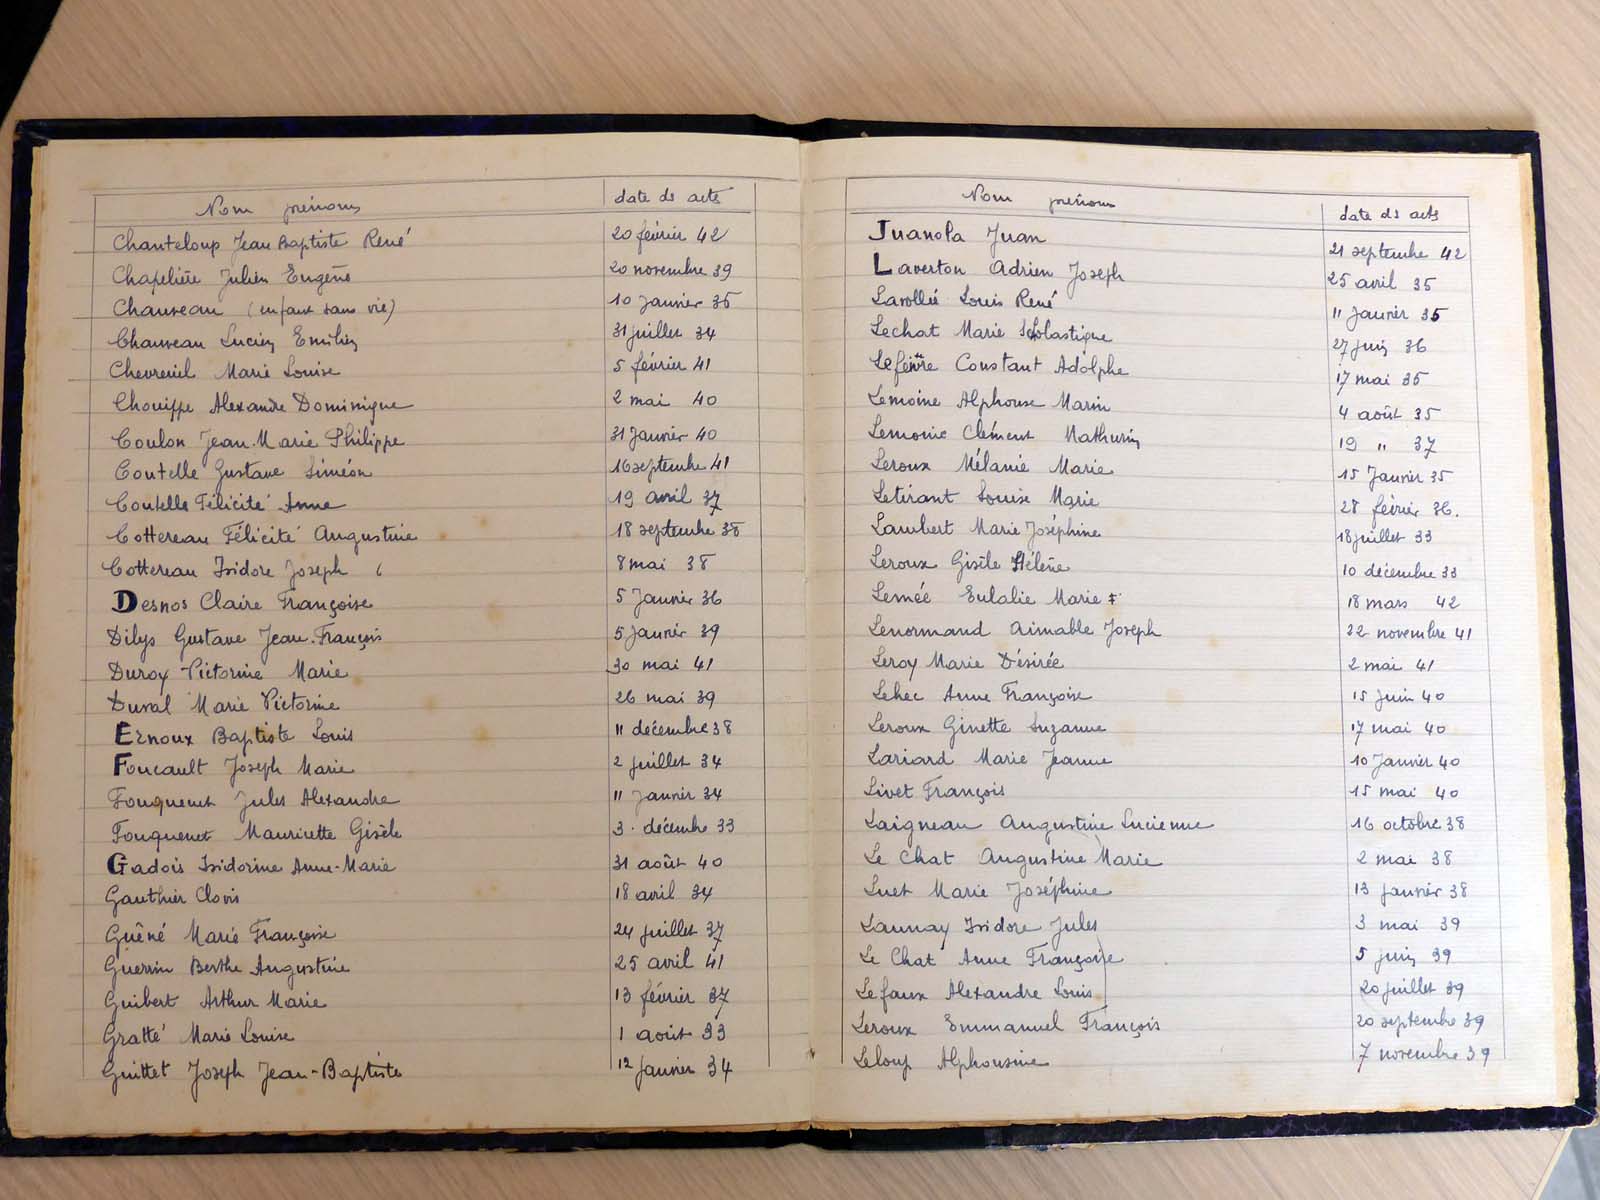 Nom prénoms date ds acts
Chanteloup Jean Baptiste René 20 février 42
Chapelière Julien Eugène 20 novembre 39
Chauveau (enfant sans vie) 10 Janvier 35
Chauveau Lucien Emilien 31 juillet 34
Chevreuil Marie Louise 5 février 41
Chouippe Alexandre Dominique 2 mai 40
Coulon Jean-Marie Philippe 31 Janvier 40
Coutelle Gustave Siméon 16 septembre 41
Coutelle Félicité Anne 19 avril 37
Cottereau Félicité Augustine 18 septembre 38
Cottereau Isidore Joseph 8 mai 38
Desnos Claire Françoise 5 Janvier 36
Dilys Gustave Jean-François 5 Janvier 39
Duroy Victorine Marie 30 mai 41
Duval Marie Victorine 26 mai 39
Ernoux Baptiste Louis 11 décembre 38
Foucault Joseph Marie 2 juillet 34
Fouquenet Jules Alexandre 11 Janvier 34
Fouquenet Mauricette Gisèle 3 décembre 33
Gadois Isidorine Anne-Marie 31 août 40
Gauthier Clovis 18 avril 34
Guêné Marie Françoise 24 juillet 37
Guerrin Berthe Augustine 25 avril 41
Guibert Arthur Marie 13 février 37
Gratté Marie Louise 1 août 33
Guittet Joseph Jean-Baptiste 12 Janvier 34
Nom prénoms date ds acts
Juanola Juan 21 septembre 42
Laverton Adrien Joseph 25 avril 35
Lavollée Louis René 11 Janvier 35
Lechat Marie Scholastique 27 juin 36
Lefeuvre Constant Adolphe 17 mai 35
Lemoine Alphonse Marin 4 août 35
Lemonie Clément Mathurin 19 " 37
Leroux Mélanie Marie 15 Janvier 35
Letirant Louise Marie 28 février 36.
Lambert Marie Joséphine 18 juillet 33
Leroux Gisèle Hélène 10 décembre 33
Lemée Eulalie Marie F. 18 mars 42
Lenormand Aimable Joseph 22 novembre 41
Leroy Marie Désirée 2 mai 41
Lehec Anne Françoise 15 Juin 40
Leroux Ginette Suzanne 17 mai 40
Lariard Marie Jeanne 10 Janvier 40
Livet François 15 mai 40
Laigneau Augustine Lucienne 16 octobre 38
Le Chat Augustine Marie 2 mai 38
Luet Marie Joséphine 13 Janvier 38
Launay Isidore Jules 3 mai 39
Le Chat Anne Françoise 5 juin 39
Lefaux Alexandre Louis 20 juillet 39
Leroux Emmanuel François 20 septembre 39
Leloup Alphonsine 7 novembre 39